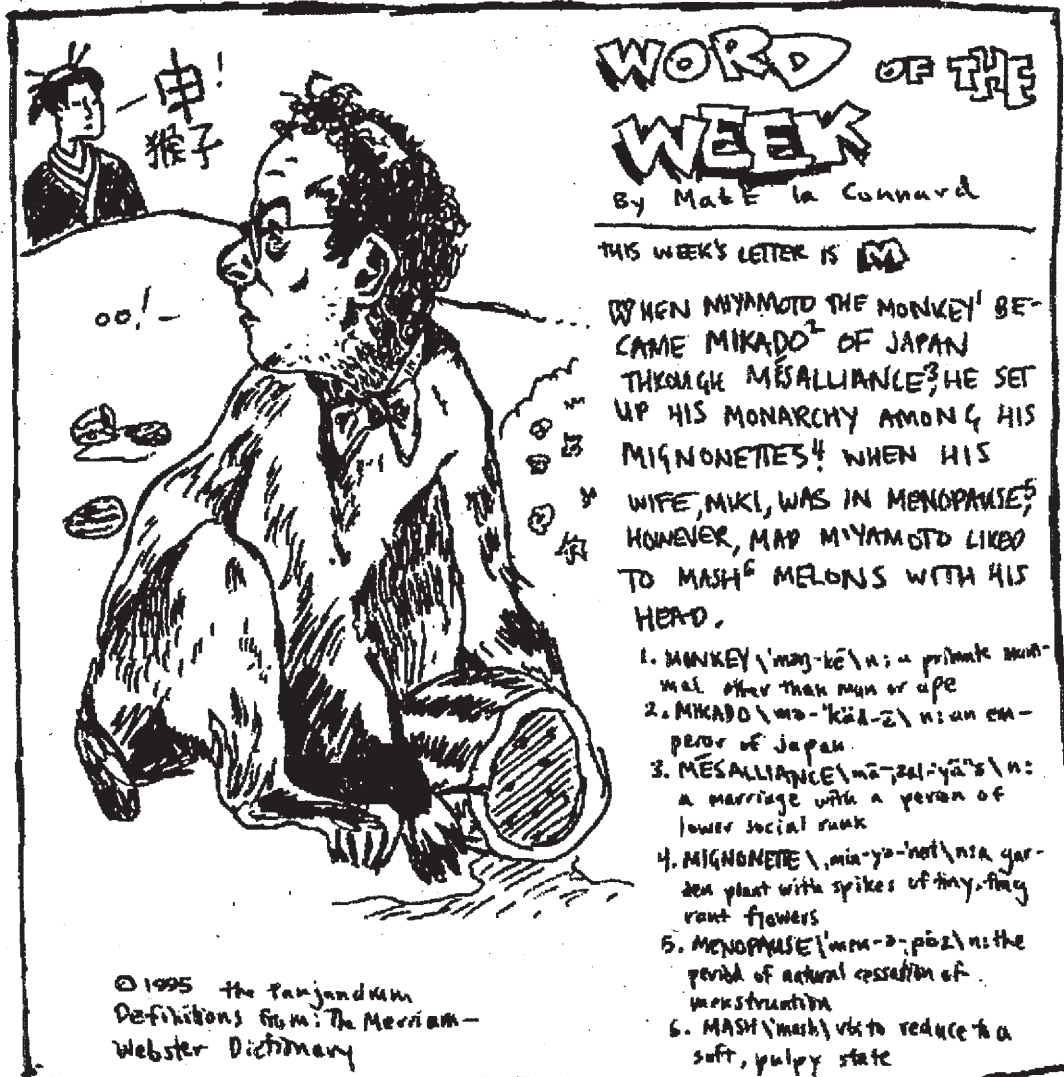 申!
猴子
oo!
WORD OF THE
WEEK
By Matt la Connard
THIS WEEK'S LETTER IS M
WHEN MIYAMOTO THE MONKEY¹ BE-
CAME MIKADO² OF JAPAN
THROUGH MÉSALLIANCE³, HE SET
UP HIS MONARCHY AMONG HIS
MIGNONETTES⁴. WHEN HIS
WIFE, MIKI, WAS IN MENOPAUSE⁵,
HOWEVER, MAD MIYAMOTO LIKED
TO MASH⁶ MELONS WITH HIS
HEAD.
1. MONKEY \'məŋ-kē\ n: a primate mam-
mal other than man or ape
2. MIKADO \mə-'käd- \ n: an em-
peror of japan
3. MÉSALLIANCE \ n:
a marriage with a person of
lower social rank
4. MIGNONETTE \ n: a gar-
den plant with spikes of tiny, frag
rant flowers
5. MENOPAUSE \'men-ə-pȯz\ n: the
period of natural cessation of
menstruation
6. MASH \'mash\ vb: to reduce to a
soft, pulpy state
© 1995 the Panjandrum
Definitions from: The Merriam-
Webster Dictionary